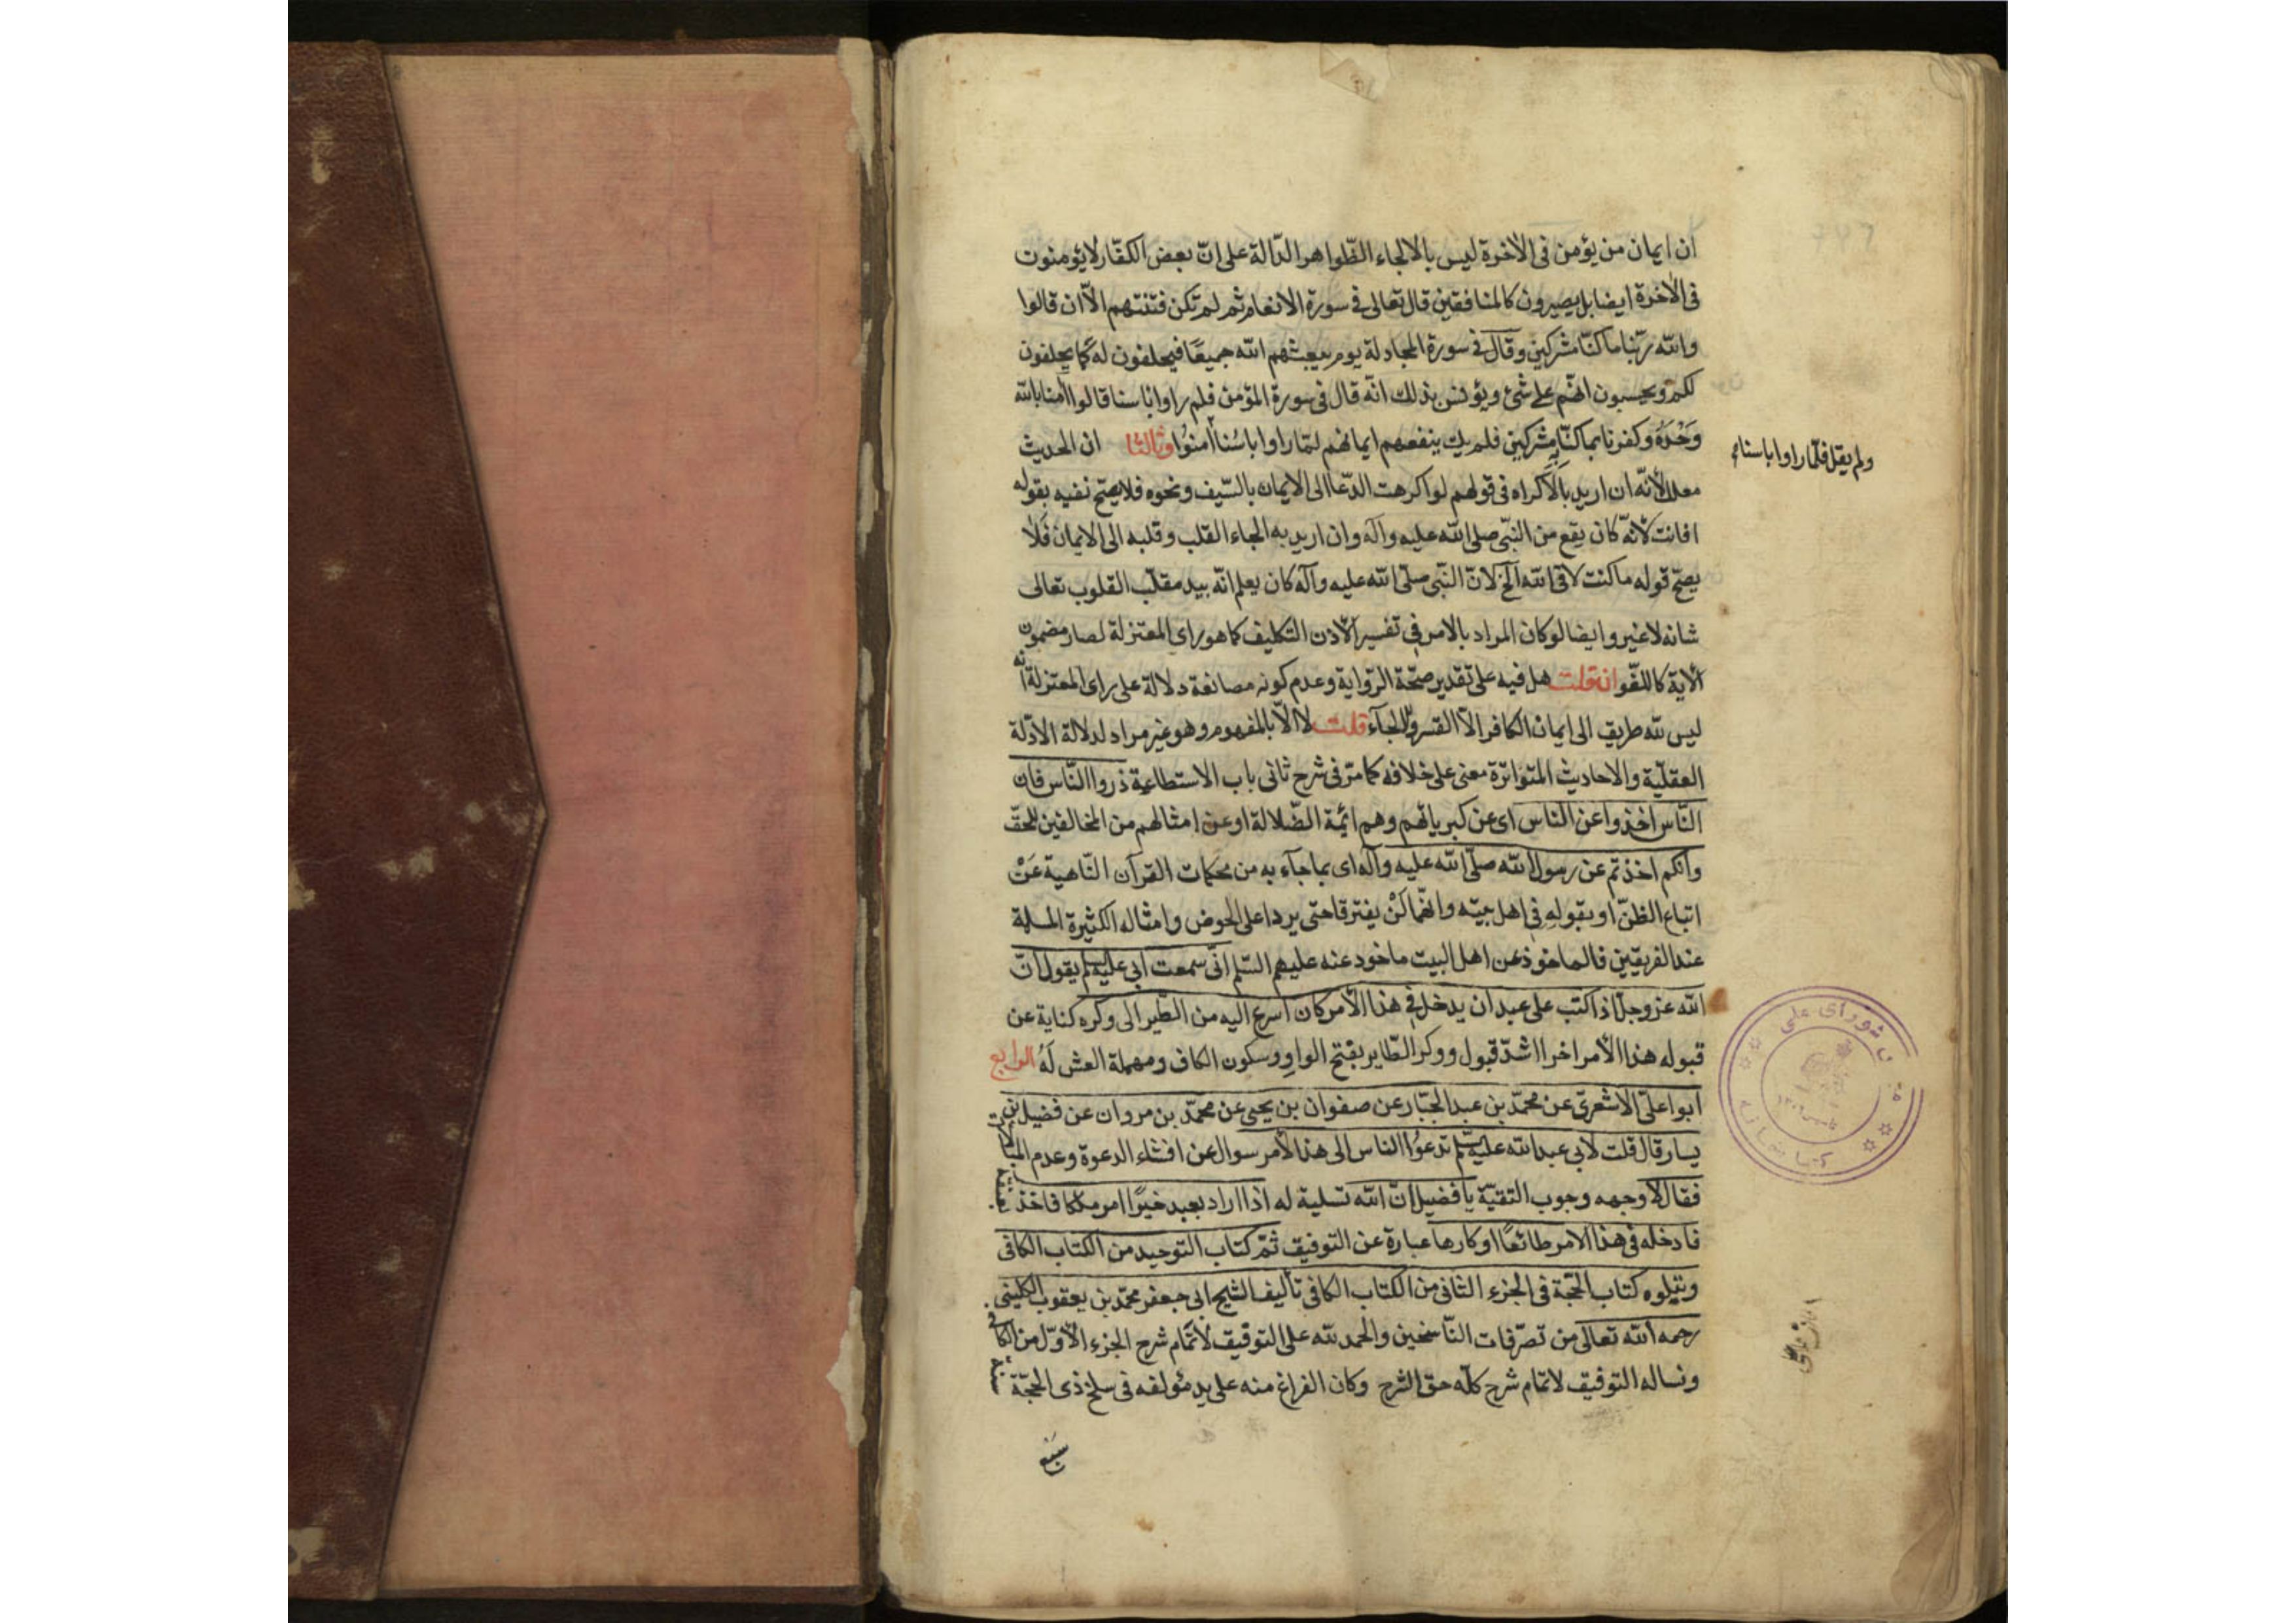 ان ايمان من يؤمن فى الآخرة ليس بالالجاء الظّواهر الدّالة على انّ بعض الكفّار لايؤمنون
فى الآخرة ايضا بل يصيرون كالمنافقين قال تعالى فى سورة الانعام ثم لم تكن فتنتهم الّا ان قالوا
والله ربّنا ما كنّا مشركين وقال فى سورة المجادلة يوم يبعثهم الله جميعًا فيحلفون له كما يحلفون
لكم ويحسبون انّهم على شئ ويؤنس بذلك انّه قال فى سورة المؤمن فلم راوا باسنا قالوا آمنا بالله
وَحْدَهُ وكفرنا بما كنّا به مشركين فلم يك ينفعهم ايمانهم لمّا راوا باسُنا آمنُوا وثالثا ان الحديث
ولم يقل فلمّا راوا باسنا
معلل لأنّه ان اريد بالاكراه فى قولهم لو اكرهت الدّعا الى الايمان بالسّيف ونحوه فلا يصحّ نفيه بقوله
افانت لأنّه كان يقع من النبّى صلى الله عليه وآله وان اريد به الجاء القلب وقلبه الى الايمان فلا
يصحّ قوله ما كنت لاقى الله الخ لانّ النّبى صلّى الله عليه وآله كان يعلم انّه بيد مقلّب القلوب تعالى
شانه لاغير وايضا لو كان المراد بالامر فى تفسير الاذن التكليف كما هو راى المعتزلة لصار مضمون
الآية كاللغو ان قلت هل فيه على تقدير صحّة الرّواية وعدم كونه مصانعة دلالة على راى المعتزلة انه
ليس لله طريق الى ايمان الكافر الّا القسر والالجآء قلت لا الّا بالمفهوم وهو غير مراد لدلالة الادّلة
العقليّة والاحاديث المتواترة معنى على خلافه كما مرّ فى شرح ثانى باب الاستطاعة ذروا النّاس فان
النّاس اخذوا عن الناس اى عن كبريائهم وهم ائمة الضّلالة او عن امثالهم من المخالفين للحقّ
وانّكم اخذتم عن رسول الله صلّى الله عليه وآله اى بما جآء به من محكمات القرآن النّاهية عَنْ
اتباع الظنّ او بقوله فى اهل بيته وانّهما لَنْ يفترقا حتى يردا على الحوض وامثاله الكثيرة المسلمة
عند الفريقين فالماخوذ عن اهل البيت ماخوذ عنه عليهم السّلم انّى سمعت ابى عليه السلم يقول انّ
الله عز وجل اذا كتب على عبد ان يدخل فى هذا الأمر كان اسرع اليه من الطّير الى وكره كناية عن
قبوله هذا الأمر اخرا اشدّ قبول ووكر الطّاير بفتح الواو وسكون الكاف ومهملة العش لَهُ الرابع
ابو اعلىّ الاشعرىّ عن محمّد بن عبد الجبّار عن صفوان بن يحيى عن محمّد بن مروان عن فضيل بن
يسار قال قلت لأبى عبد الله عليه السّلم تدعوُا الناس الى هذا الأمر سوال عن افشاء الدعوة وعدم المبالات
فقال لا وجهه وجوب التقيّة يا فضيل انّ الله تسلية له اذا اراد بعبد خيرًا امر ملكا فاخذ بعنقه
فادخله فى هذا الامر طائعًا او كارها عبارة عن التوفيق ثمّ كتاب التوحيد من الكتاب الكافى
ويتلوه كتاب الحجّة فى الجزء الثانى من الكتاب الكافى تأليف الشيخ ابى جعفر محمّد بن يعقوب الكلينى
رحمه الله تعالى من تصرّفات النّاسخين والحمد لله على التوفيق لأتمام شرح الجزء الأوّل من الكافى
ونساله التوفيق لاتمام شرح كلّه حقّ الشرح وكان الفراغ منه على يد مؤلفه فى سلخ ذى الحجّة سنة
شوراى ملى
كتابخانه